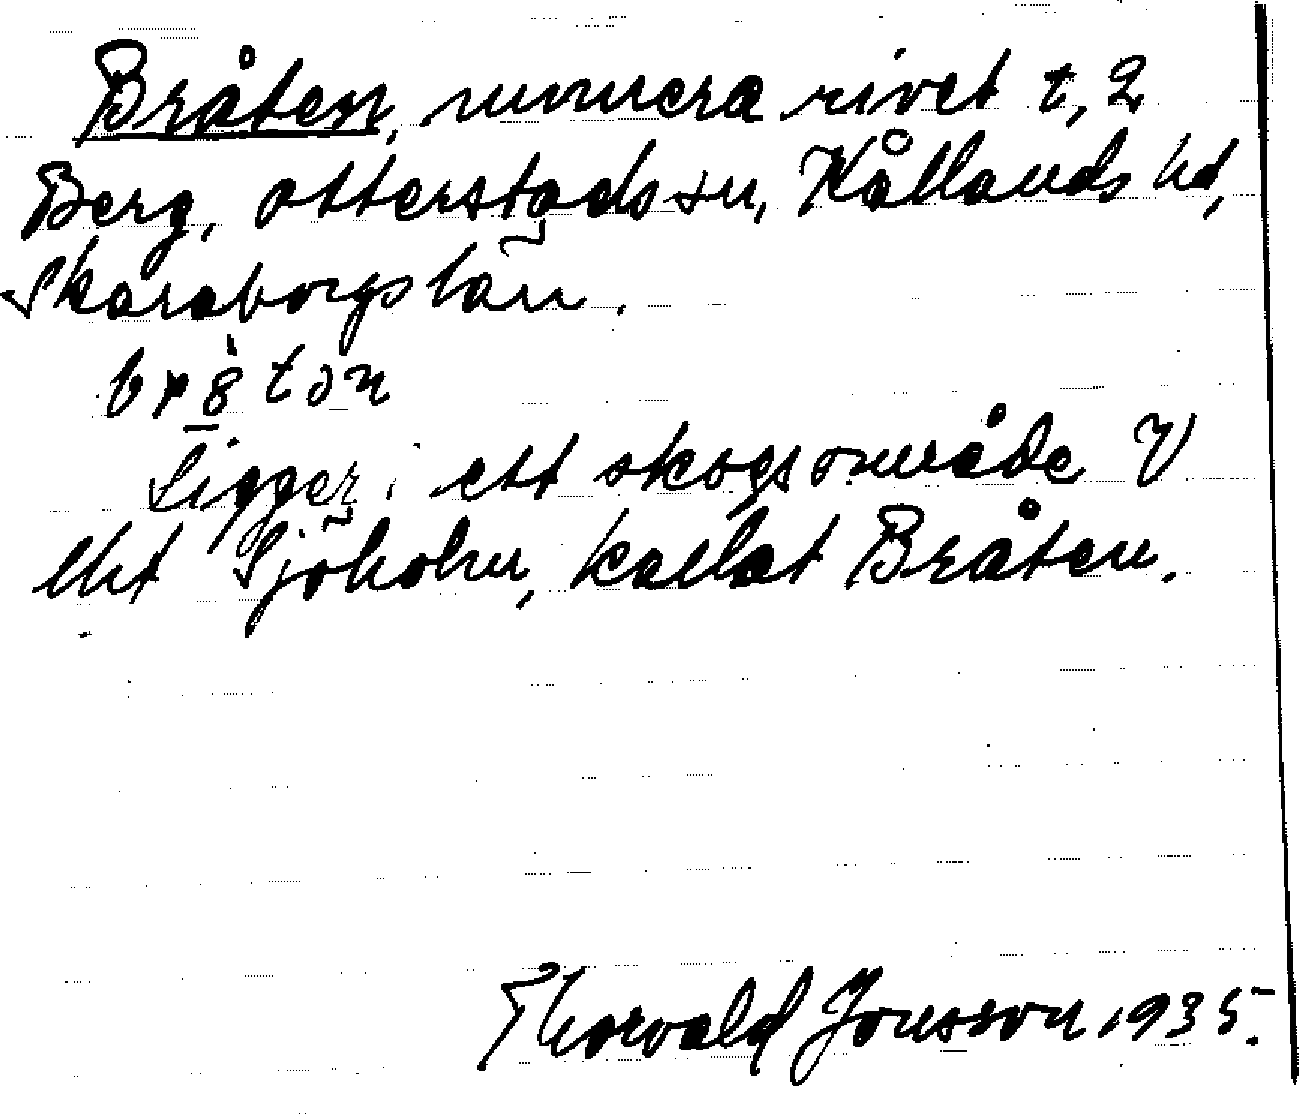 Bråten, numera rivet t, 2
Berg, Otterstads sn, Kållands hd,
Skaraborgs län.
Ligger i ett skogsområde V
Sjöholm, kallat Bråten.
Thorvald Jonsson 1935.